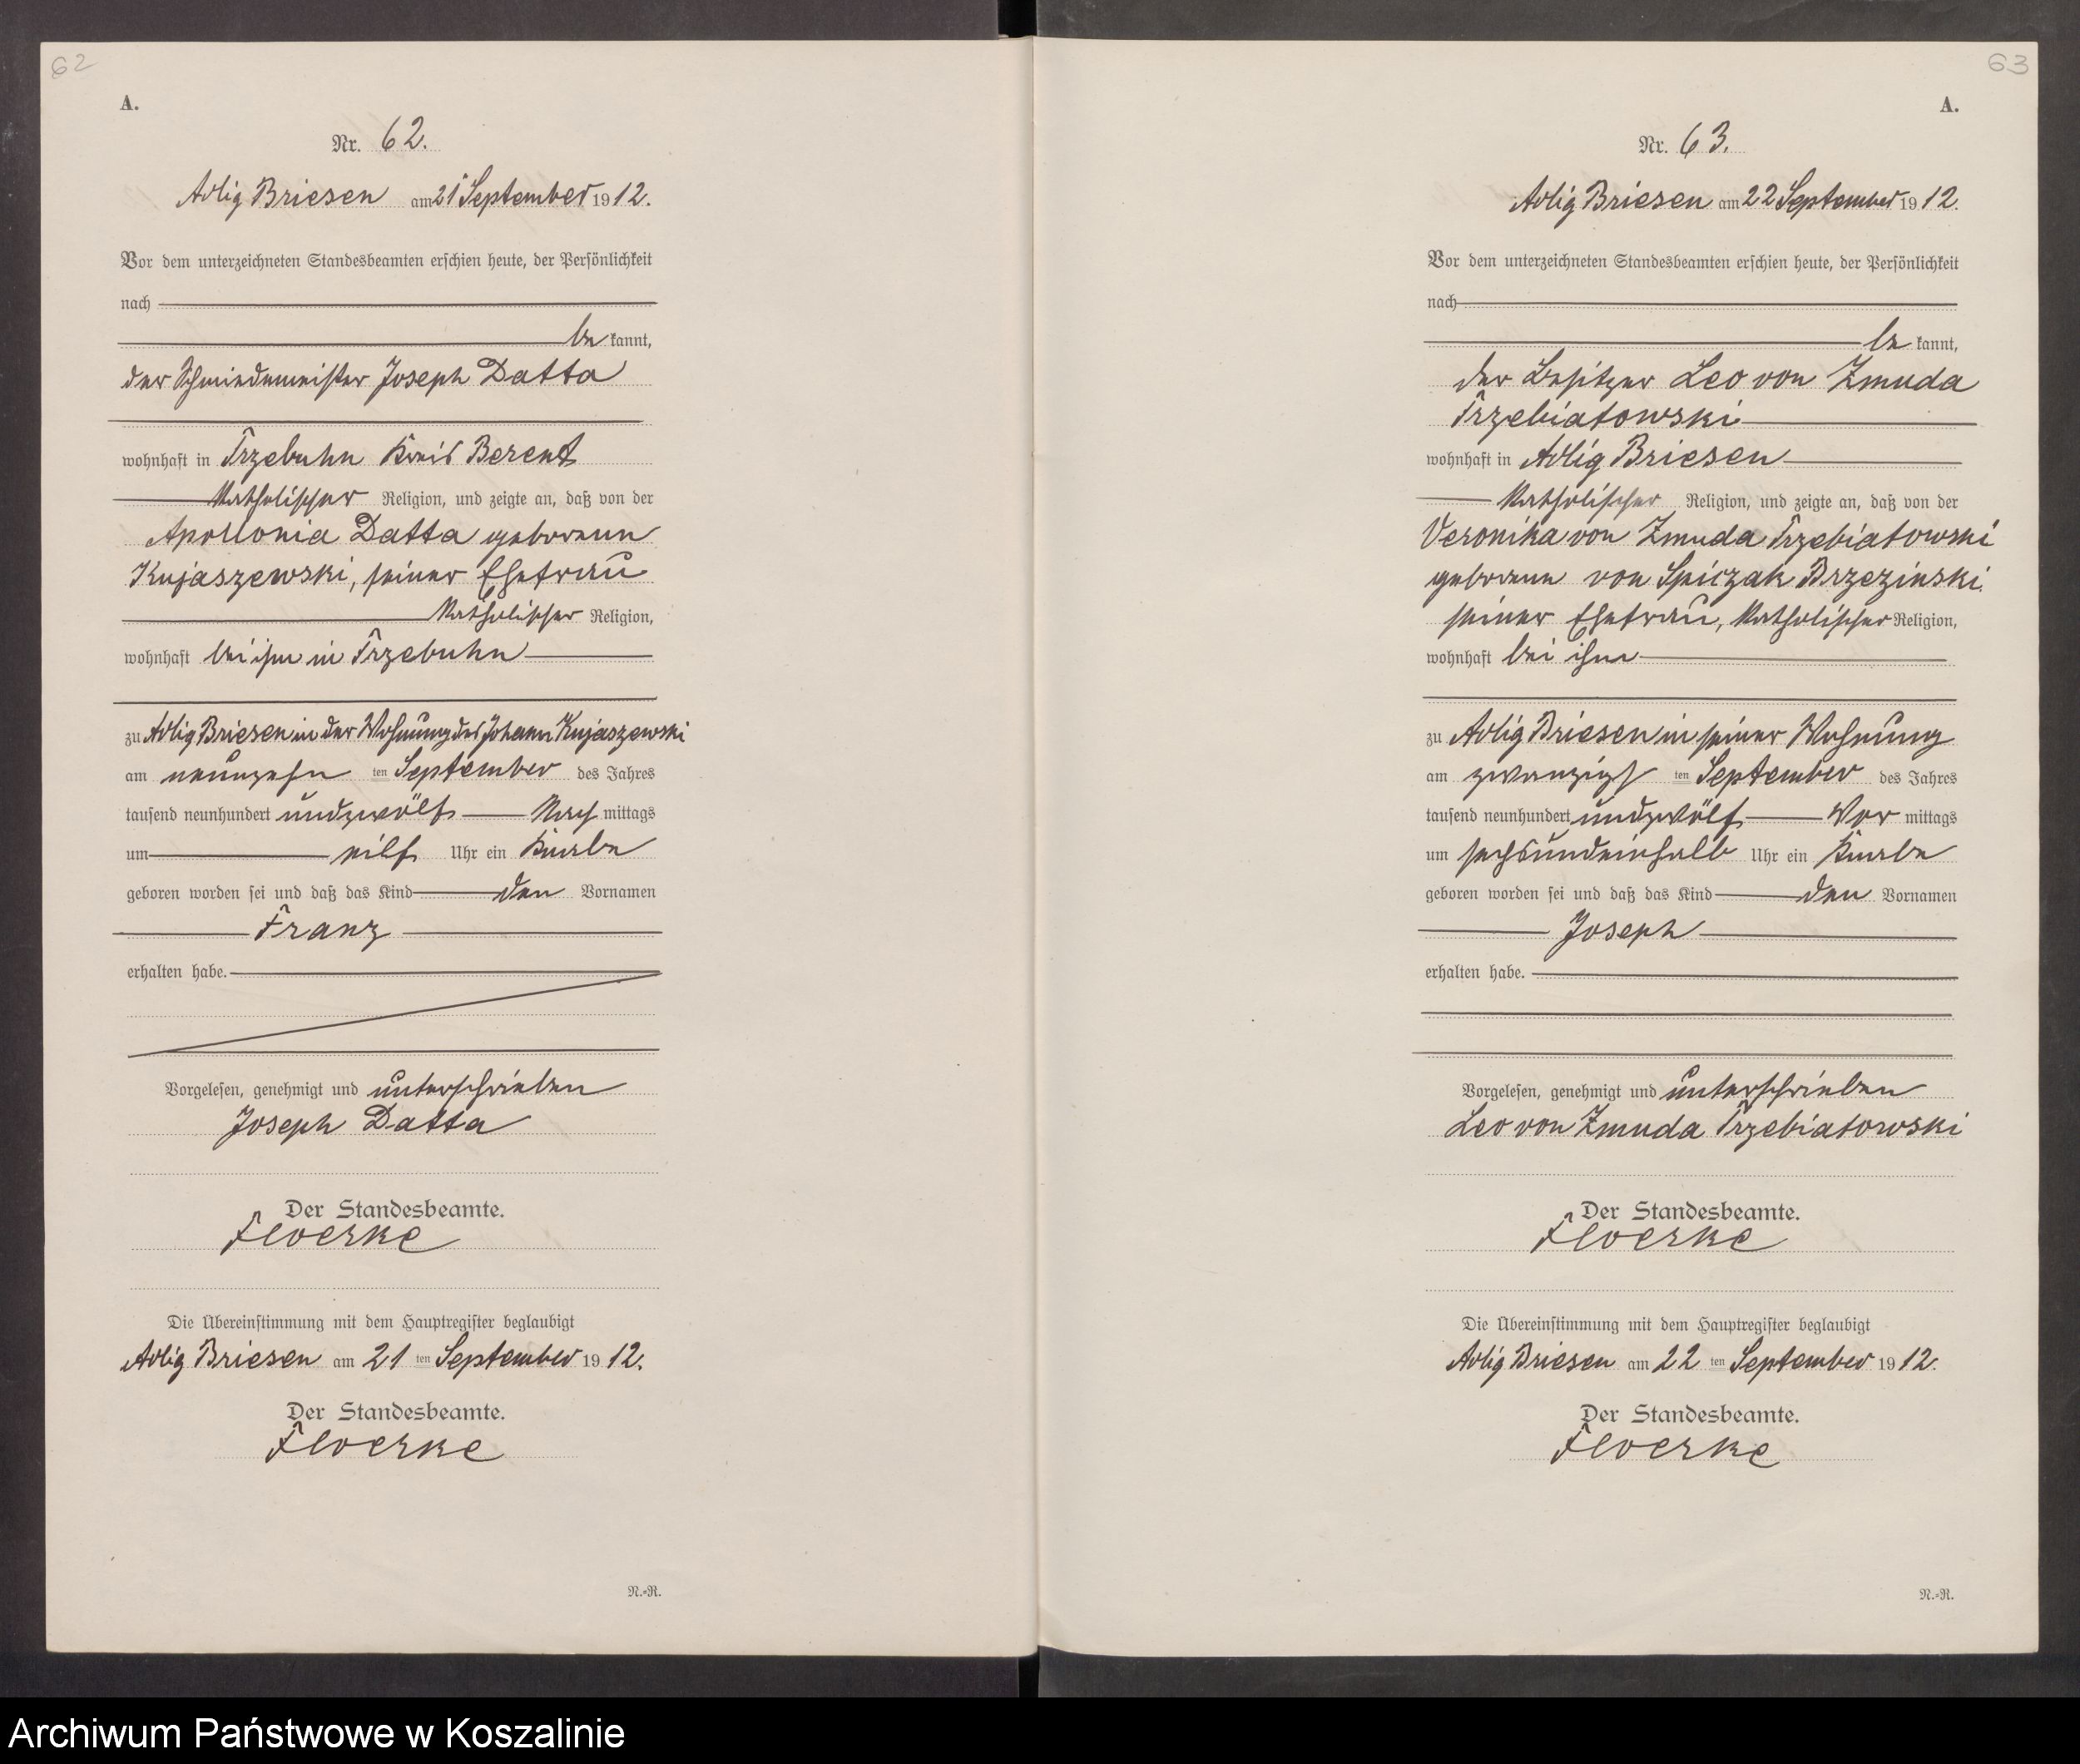 62
A.
Nr. 62.
Adlig Briesen am 21 September 1912.
Vor dem unterzeichneten Standesbeamten erschien heute, der Persönlichkeit
nach
be kannt,
der Schmiedemeister Joseph Datta
wohnhaft in Trzebuhn Kreis Berent
katholischer Religion, und zeigte an, daß von der
Apollonia Datta geborenen
Kujaszewski, seiner Ehefrau
katholischer Religion,
wohnhaft bei ihm in Trzebuhn
zu Adlig Briesen in der Wohnung des Johann Kujaszewski
am neunzehn ten September des Jahres
tausend neunhundert und zwölf Nach mittags
um elf Uhr ein Knabe
geboren worden sei und daß das Kind den Vornamen
Franz
erhalten habe.
Vorgelesen, genehmigt und unterschrieben
Joseph Datta
Der Standesbeamte.
Floerke
Die Übereinstimmung mit dem Hauptregister beglaubigt
Adlig Briesen am 21 ten September 1912.
Der Standesbeamte.
Floerke
N.-R.
63
A.
Nr. 63.
Adlig Briesen am 22 September 1912.
Vor dem unterzeichneten Standesbeamten erschien heute, der Persönlichkeit
nach
be kannt,
der Besitzer Leo von Zmuda
Trzebiatowski
wohnhaft in Adlig Briesen
katholischer Religion, und zeigte an, daß von der
Veronika von Zmuda Trzebiatowski
geborene von Spiczak Brzezinski
seiner Ehefrau, katholischer Religion,
wohnhaft bei ihm
zu Adlig Briesen in seiner Wohnung
am zwanzigs ten September des Jahres
tausend neunhundert und zwölf Vor mittags
um sechsundeinhalb Uhr ein Knabe
geboren worden sei und daß das Kind den Vornamen
Joseph
erhalten habe.
Vorgelesen, genehmigt und unterschrieben
Leo von Zmuda Trzebiatowski
Der Standesbeamte.
Floerke
Die Übereinstimmung mit dem Hauptregister beglaubigt
Adlig Briesen am 22 ten September 1912.
Der Standesbeamte.
Floerke
N.-R.
Archiwum Państwowe w Koszalinie